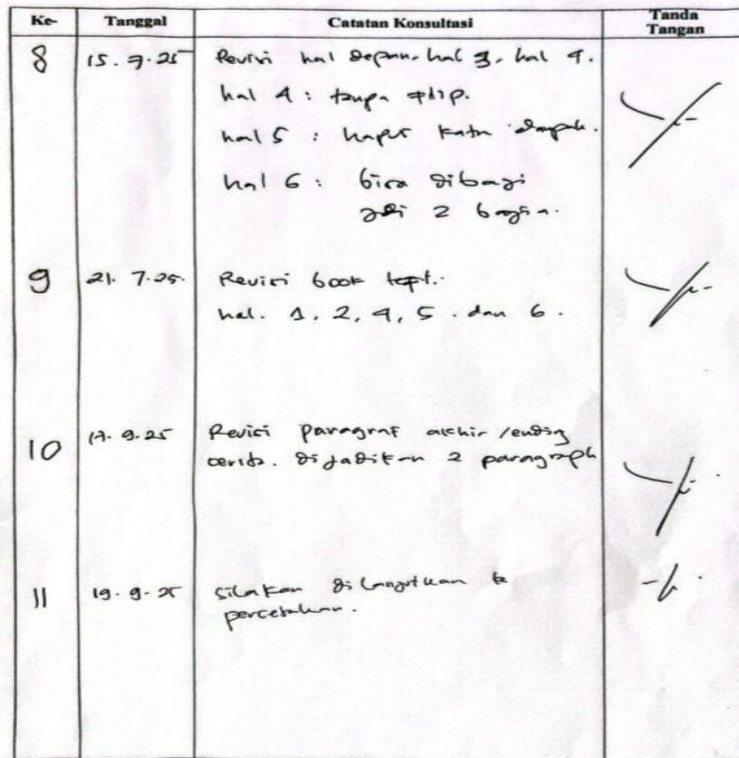 Ke- Tanggal Catatan Konsultasi Tanda Tangan
8 15.7.25 Revisi hal depan. hal 3. hal 4.
hal 4 : tanpa
hal 5 : hapus kata
hal 6 : bisa dibagi
jadi 2 bagian.
9 21.7.25. Revisi book
hal. 1, 2, 4, 5. dan 6.
10 17.9.25 Revisi Paragraf akhir/ending
cerita. dijadikan 2 paragraph
11 19.9.25 silakan dilanjutkan ke
percetakan.